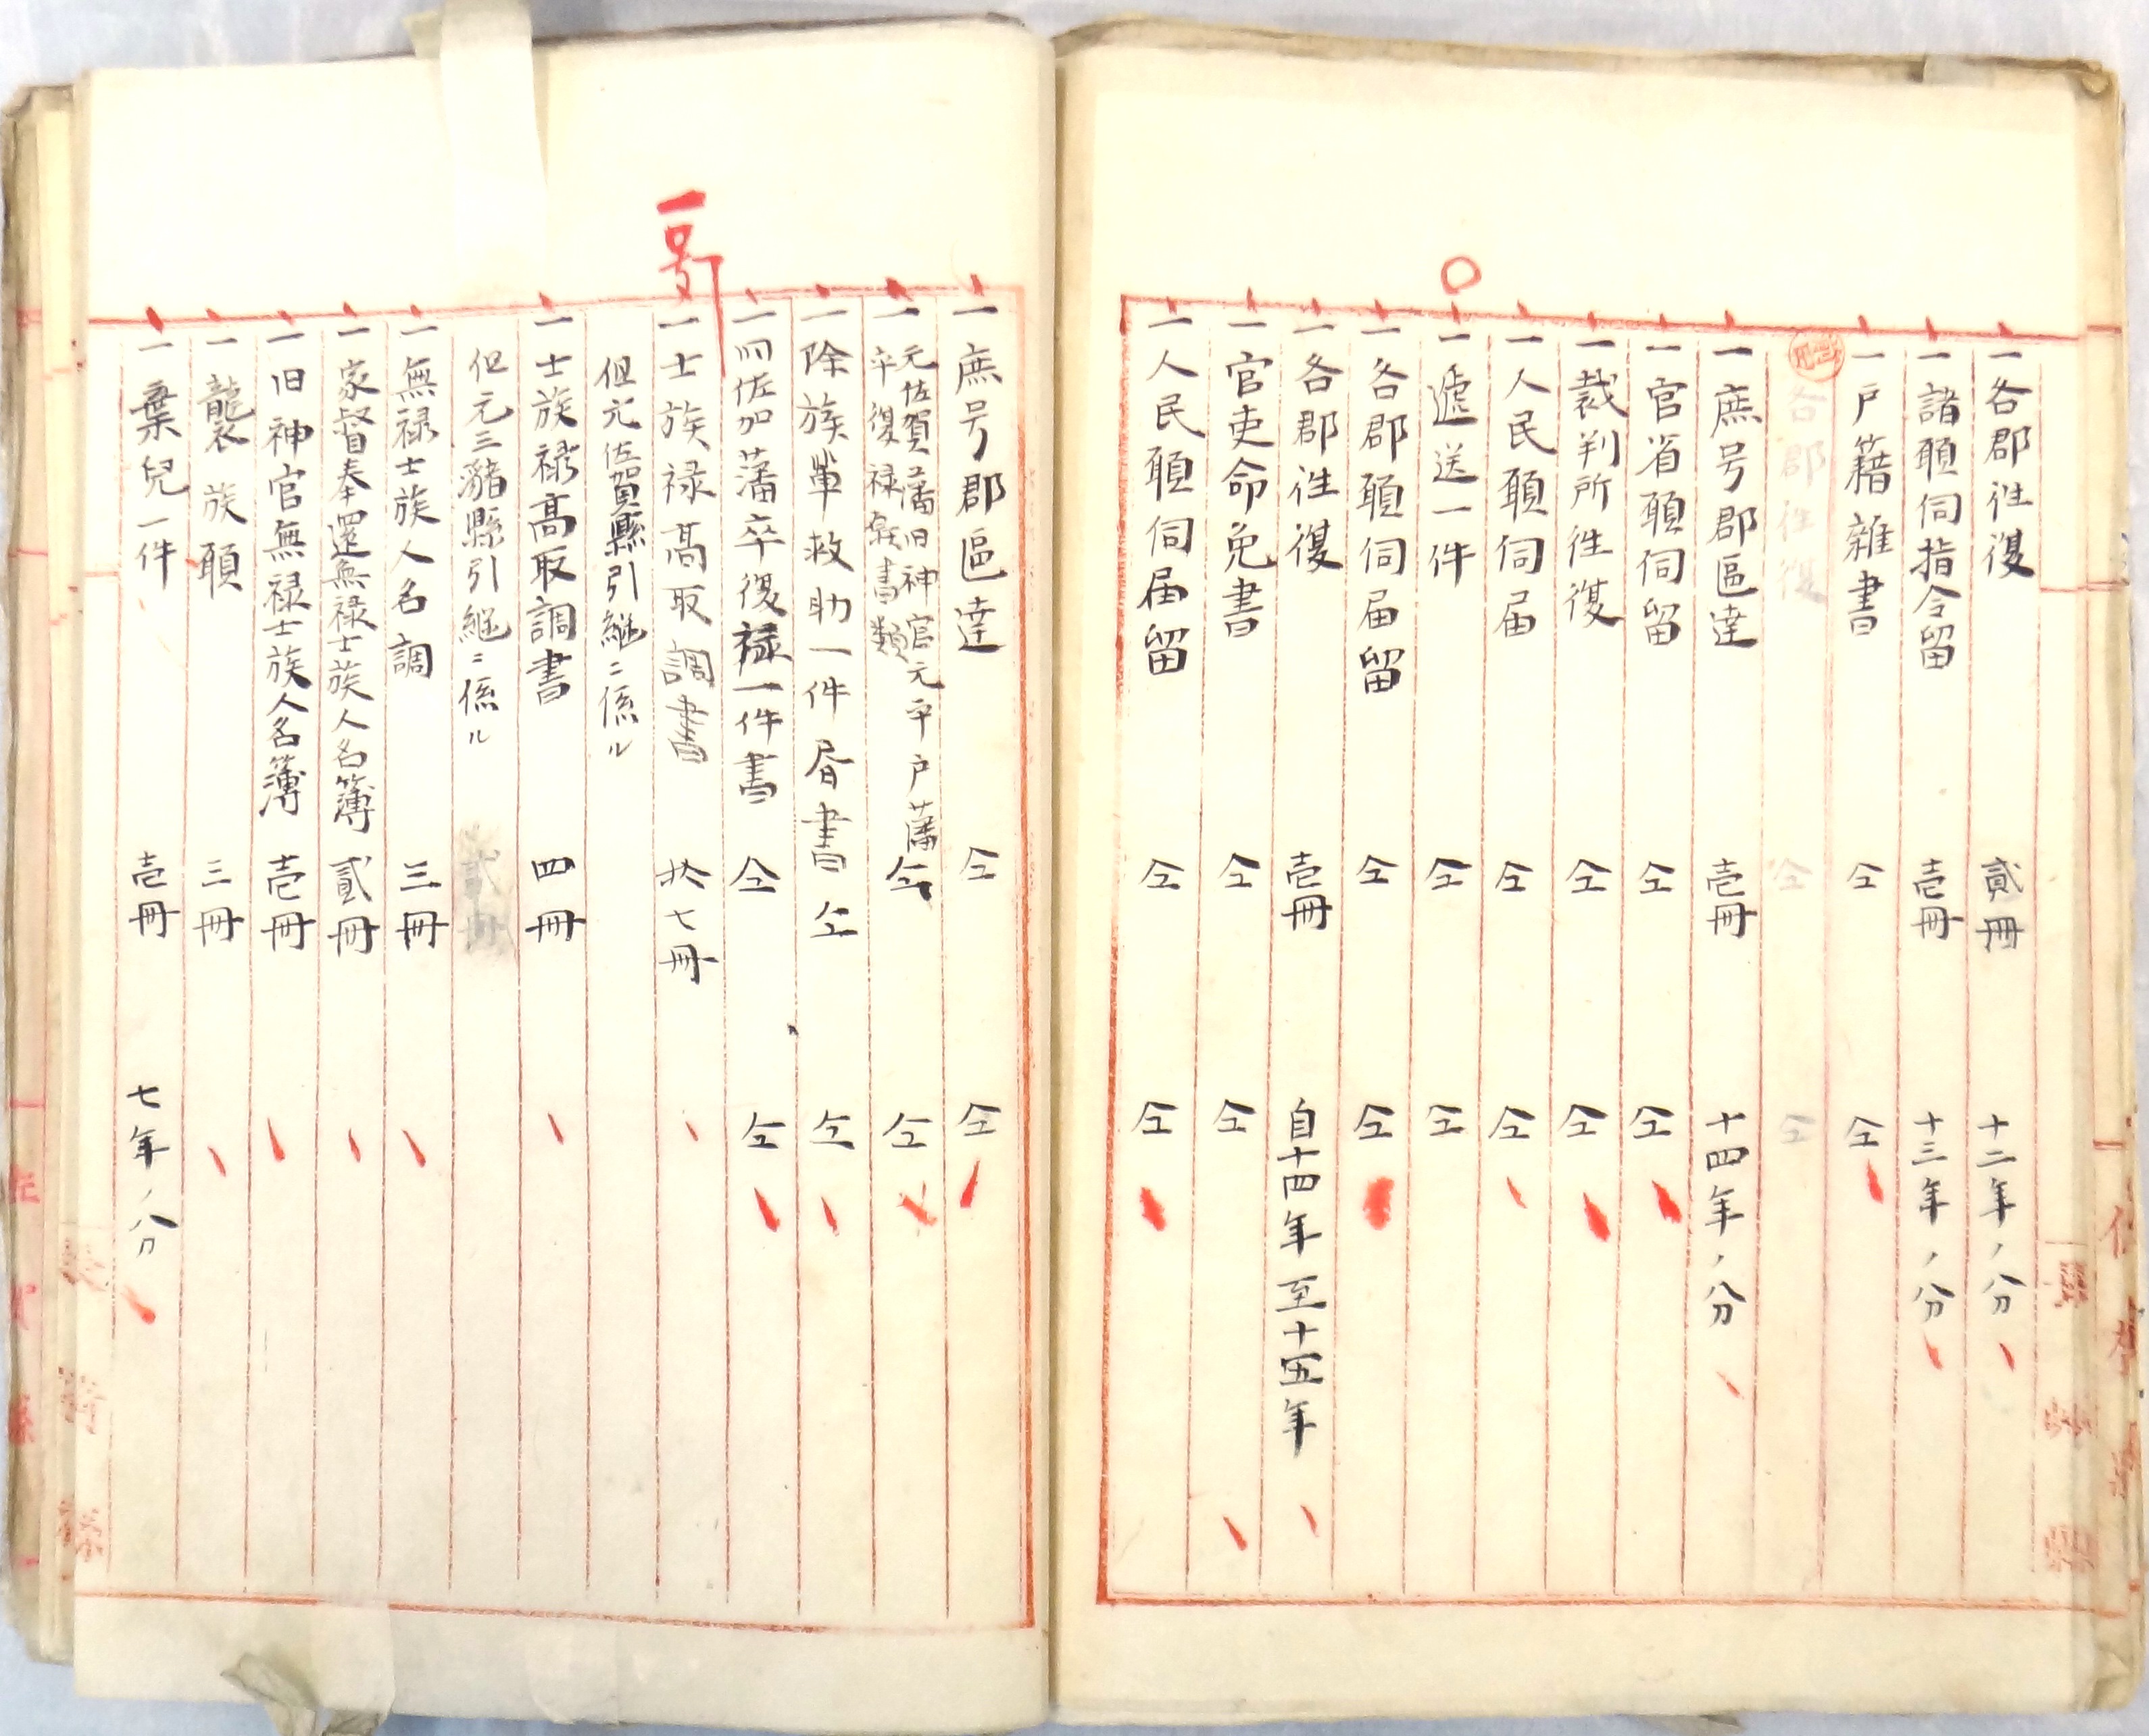 一各郡徃復 貳冊 十二年ノ分
一諸願伺指令留 壱冊 十三年ノ分
一戸籍雑書 仝 仝
各郡徃復 仝 仝
一庶号郡區達 壱冊 十四年ノ分
一官省願伺留 仝 仝
一裁判所徃復 仝 仝
一人民願伺届 仝 仝
一遞送一件 仝 仝
一各郡願伺届留 仝 仝
一各郡徃復 壱冊 自十四年至十五年
一官吏命免書 仝 仝
一人民願伺届留 仝 仝
一庶号郡區達 仝 仝
一元佐賀藩旧神官元平戸藩
卒復禄書類 仝 仝
一除族軰救助一件書 仝 仝
一佐加藩卒復禄一件書 仝 仝
一号
一士族禄髙取調書 拾七冊
但元佐賀縣引継ニ係ル
一士族禄髙取調書 四冊
但元三瀦縣引継ニ係ル 貳冊
一無禄士族人名調 三冊
一家督奉還無禄士族人名簿 貳冊
一旧神官無禄士族人名簿 壱冊
一襲族願 三冊
一棄兒一件 壱冊 七年ノ分